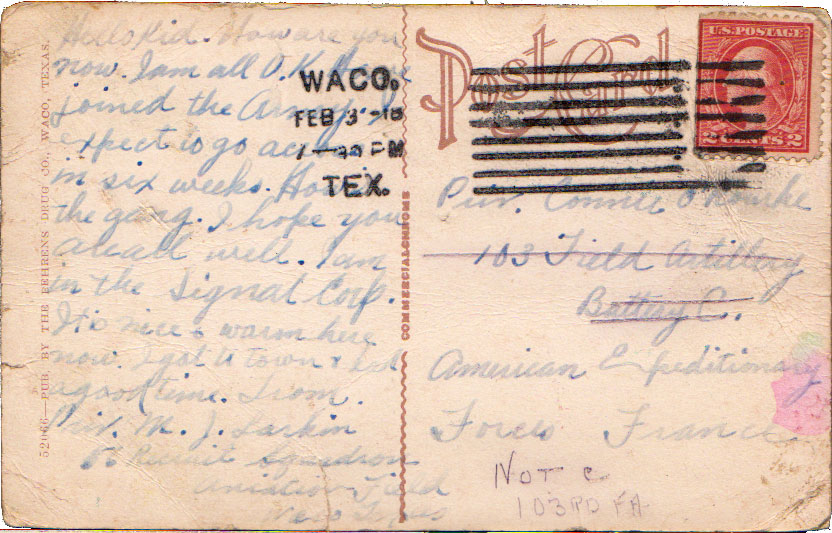 Hello Kid. How are you
now. I am all O.K. Have
joined the Army. I
expect to go across
in six weeks. How
the gang. I hope you
are all well. I am
in the Signal Corp.
It is nice & warm here
now. I go to town &
a good time. From
Priv. M. J. Larkin
Recruit Squadron
Aviation Field
Waco Texas
52066—PUB. BY THE BEHRENS DRUG CO., WACO, TEXAS.
WACO.
FEB 3 -18
PM
TEX.
COMMERCIALCHROME
Post Card
U.S. POSTAGE
2 CENTS 2
Priv. Connie O'Rourke
103 Field Artillery
Battery C.
American Expeditionary
Forces France
NOT C
103RD FA